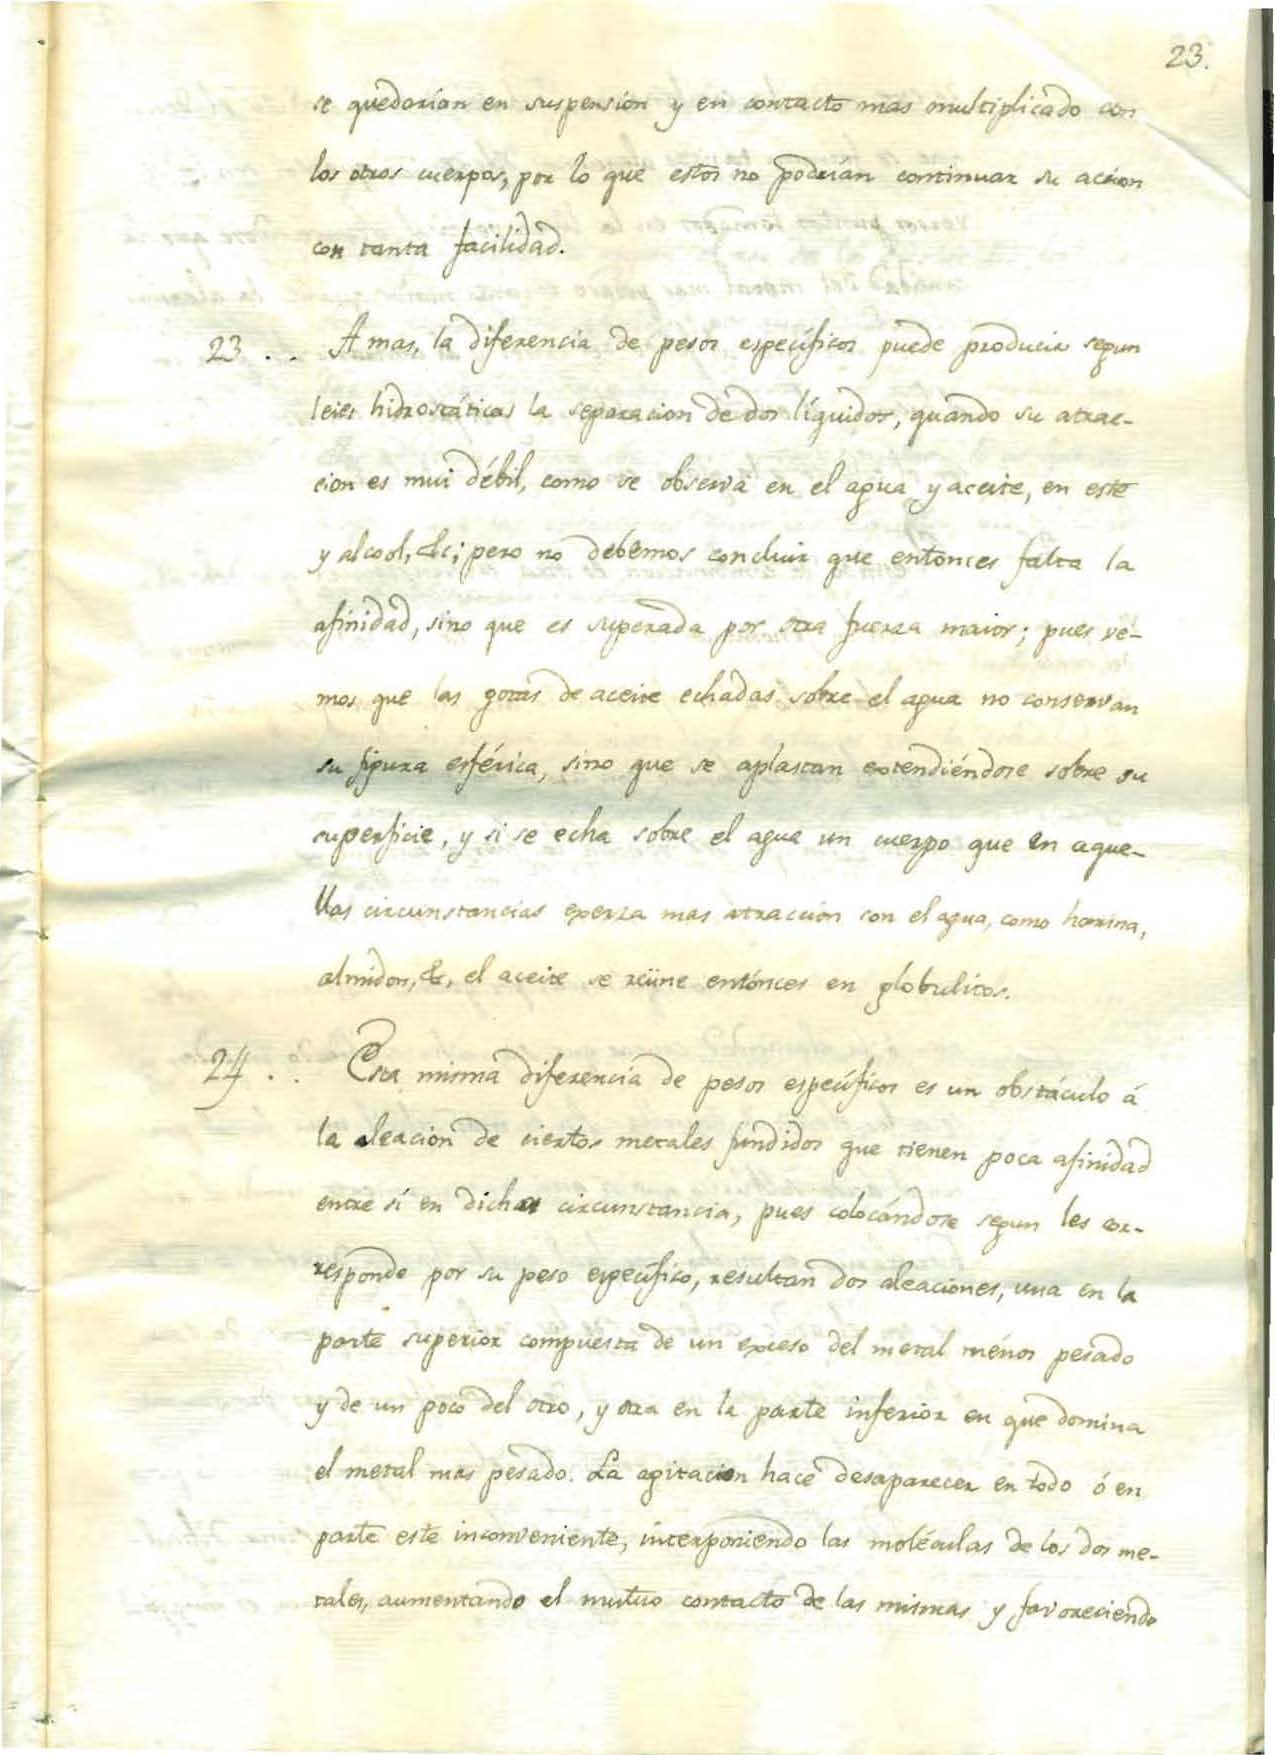 23.
se quedarían en suspensión y en contacto mas multiplicado con
los otros cuerpos, por lo que estos no podrían continuar su accion
con tanta facilidad.
23 . . A mas, la diferencia de pesos específicos puede producir segun
leies hidrostáticas la separacion de dos líquidos, quando su atrac-
cion es mui débil, como se observa en el agua y aceite, en este
y alcool, &c; pero no debemos concluir que entonces falta la
afinidad, sino que es superada por otra fuerza maior; pues ve-
mos que las gotas de aceite echadas sobre el agua no conservan
su figura esférica, sino que se aplastan extendiéndose sobre su
superficie, y si se echa sobre el agua un cuerpo que en aque-
llas circunstancias exerza mas atraccion con el agua, como harina,
almidon, &, el aceite se reüne entónces en globulitos.
24 . . Esta misma diferencia de pesos específicos es un obstáculo á
la aleacion de ciertos metales fundidos que tienen poca afinidad
entre sí en dicha circunstancia, pues colocándose segun les cor-
responde por su peso específico, resultan dos aleaciones, una en la
parte superior compuesta de un exceso del metal ménos pesado
y de un poco del otro, y otra en la parte inferior en que domina
el metal mas pesado. La agitacion hace desaparecer en todo ó en
parte este inconveniente, interponiendo las moléculas de los dos me-
tales, aumentando el mutuo contacto de las mismas y favoreciendo